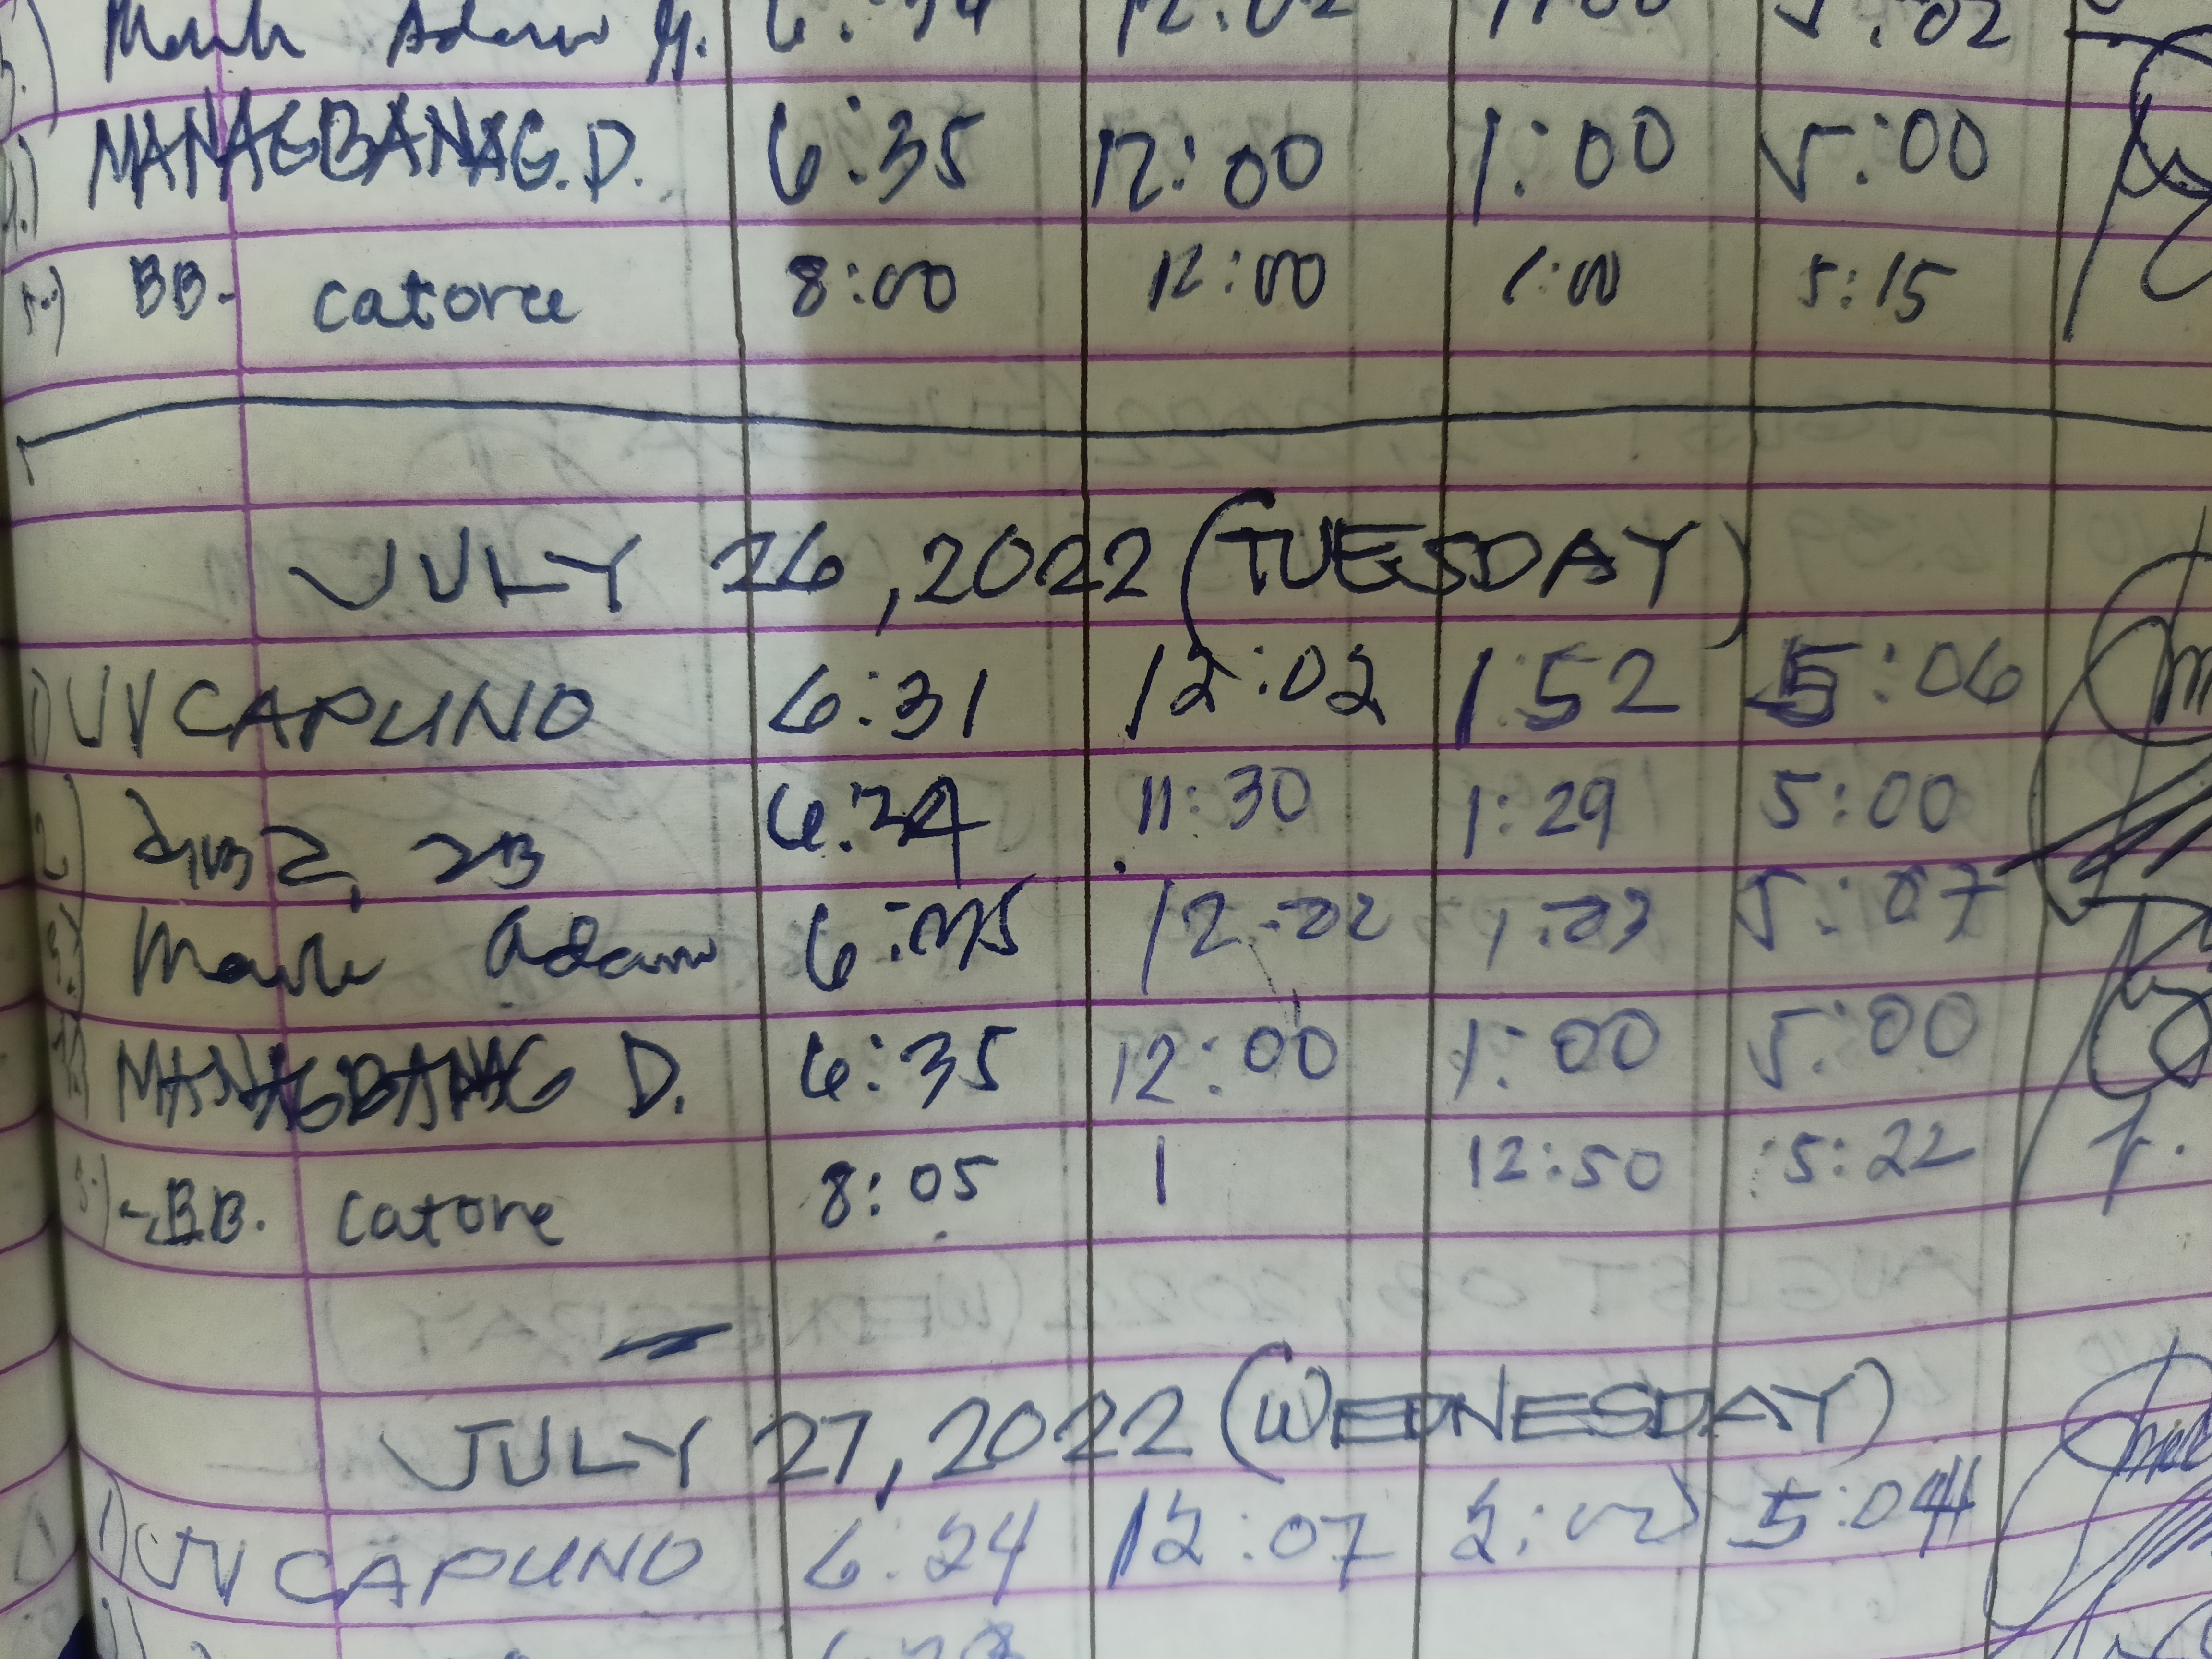 3.) Mark Adam G. 6:34 12:02 1:00 5:02
4.) MANAGBANAG. D. 6:35 12:00 1:00 5:00
5.) BB. catorce 8:00 12:00 1:00 5:15
JULY 26, 2022 (TUESDAY)
1) JV CAPUNO 6:31 12:02 1:52 5:06
2) 6:34 11:30 1:29 5:00
3.) Mark Adam 12:02 1:03 5:07
MANAGBANAG D. 6:35 12:00 1:00 5:00
5.) BB. catorce 8:05 1 12:50 5:22
JULY 27, 2022 (WEDNESDAY)
1) JV CAPUNO 6:24 12:07 5:04